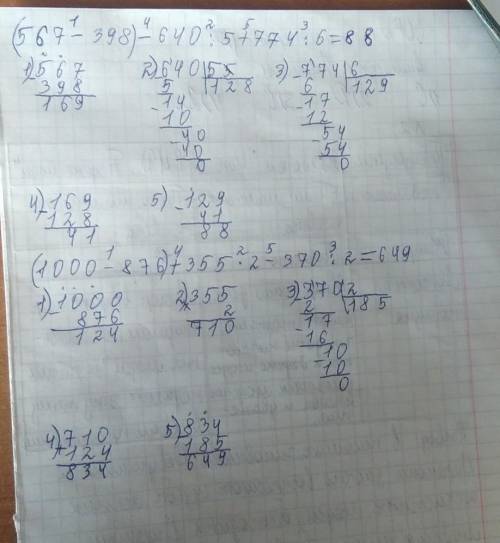 1 4 2 5 3
(567 - 398) - 640 : 5 + 774 : 6 = 88
1) - 567
398
169
2) - 640 | 5
5 | 128
- 14
10
- 40
40
0
3) - 774 | 6
6 | 129
- 17
12
- 54
54
0
4) - 169
128
41
5) - 129
41
88
1 4 2 5 3
(1000 - 876) + 355 · 2 - 370 : 2 = 649
1) - 1000
876
124
2) × 355
2
710
3) - 370 | 2
2 | 185
- 17
16
- 10
10
0
4) + 710
124
834
5) - 834
185
649